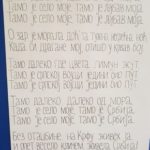 Тамо је село моје, тамо је љубав моја
Тамо је село моје, тамо је љубав моја
О зар је морала доћ та тужна несрећна ноћ
Када си драгане мој отишо у крвав бој
Тамо далеко где цвета лимун жут
Тамо је српској војци једини био пут
Тамо је српској војци једини био пут
Тамо далеко далеко од мора
Тамо је село моје, тамо је Србија
Тамо је село моје, тамо је Србија
Без отаџбине на Крфу живех ја
и опет весело кличем живела Србија!